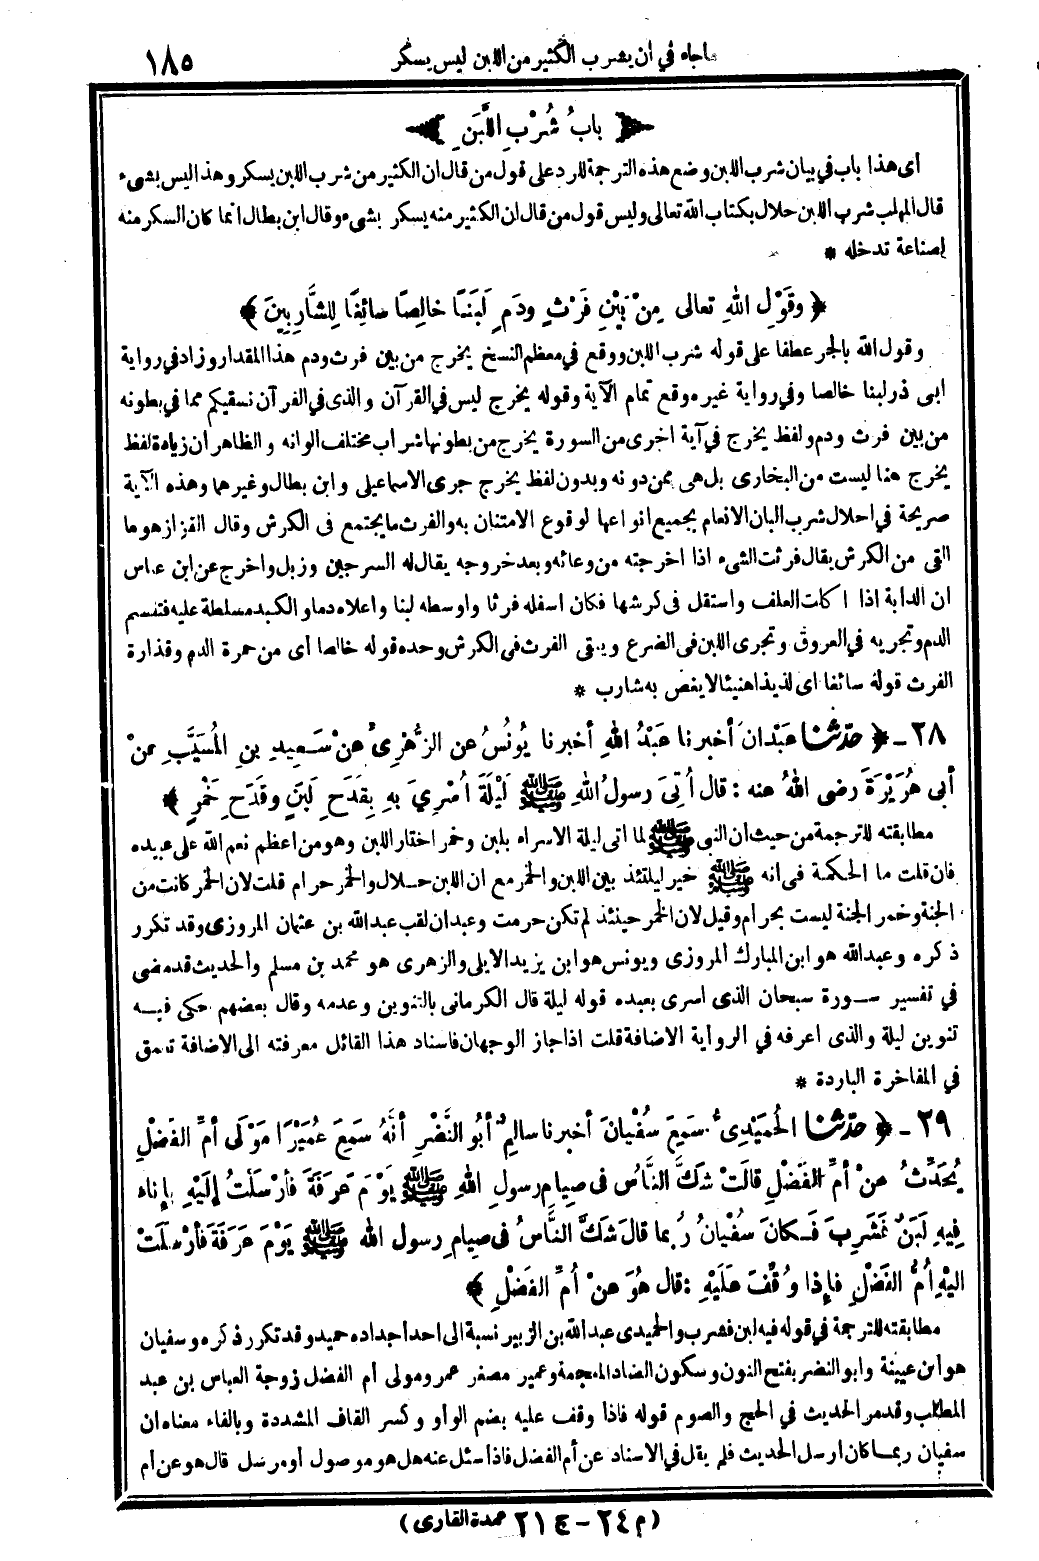 ماجاء في أن بشرب الكثير من اللبن ليس يسكر ١٨٥
﴿ بابُ شُرْبِ اللَّبَنِ ﴾
أى هذا باب في بيان شرب اللبن وضع هذه الترجمة للرد على قول من قال ان الكثير من شرب اللبن يسكر وهذا ليس بشىء
قال المهلب شرب اللبن حلال بكتاب الله تعالى وليس قول من قال ان الكثير منه يسكر بشىء وقال ابن بطال انما كان السكر منه
لصناعة تدخله *
﴿ وقَوْلِ اللهِ تعالى مِنْ بَيْنِ فَرْثٍ ودَمٍ لَبَنًا خالِصًا سائِغًا لِلشَّارِبِينَ ﴾
وقول الله بالجر عطفا على قوله شرب اللبن ووقع في معظم النسخ يخرج من بين فرث ودم هذا المقدار وزاد في رواية
ابى ذر لبنا خالصا وفي رواية غيره وقع تمام الآية وقوله يخرج ليس في القرآن والذى في القرآن نسقيكم مما في بطونه
من بين فرث ودم ولفظ يخرج في آية اخرى من السورة يخرج من بطونها شراب مختلف الوانه والظاهر أن زيادة لفظ
يخرج هنا ليست من البخارى بل هى ممن دونه وبدون لفظ يخرج جرى الاسماعيلى وابن بطال وغيرهما وهذه الآية
صريحة في احلال شرب البان الانعام بجميع انواعها لوقوع الامتنان به والفرث ما يجتمع فى الكرش وقال القزاز هو ما
القى من الكرش يقال فرثت الشىء اذا اخرجته من وعائه وبعد خروجه يقال له السرجين وزبل واخرج عن ابن عباس
ان الدابة اذا اكلت العلف واستقل فى كرشها فكان اسفله فرثا واوسطه لبنا واعلاه دما والكبد مسلطة عليه فتقسم
الدم وتجريه في العروق وتجرى اللبن فى الضرع ويبقى الفرث فى الكرش وحده قوله خالصا أى من حمرة الدم وقذارة
الفرث قوله سائغا اى لذيذا هنيئا لا يغص به شارب *
٢٨ - ﴿ حدّثنا عَبْدانَ أخبرنا عَبْدُ اللهِ أخبرنا يُونُسُ عن الزُّهْرِىِّ عنْ سَعِيدِ بنِ المُسَيَّبِ عنْ
أبى هُرَيْرَةَ رضى اللهُ عنه : قال أُتِىَ رسولُ اللهِ ﷺ لَيْلَةَ أُسْرِىَ بهِ بِقَدَحِ لَبَنٍ وقَدَحِ خَمْرٍ ﴾
مطابقته للترجمة من حيث ان النبى ﷺ لما اتى ليلة الاسراء بلبن وخمر اختار اللبن وهو من اعظم نعم الله على عبيده
فان قلت ما الحكمة فى انه ﷺ خير ليلتئذ بين اللبن والخمر مع ان اللبن حلال والخمر حرام قلت لان الخمر كانت من
الجنة وخمر الجنة ليست بحرام وقيل لان الخمر حينئذ لم تكن حرمت وعبدان لقب عبدالله بن عثمان المروزى وقد تكرر
ذكره وعبدالله هو ابن المبارك المروزى ويونس هو ابن يزيد الايلى والزهرى هو محمد بن مسلم والحديث قد مضى
في تفسير سورة سبحان الذى اسرى بعبده قوله ليلة قال الكرمانى بالتنوين وعدمه وقال بعضهم حكى فيه
تنوين ليلة والذى اعرفه في الرواية الاضافة قلت اذا جاز الوجهان فاسناد هذا القائل معرفته الى الاضافة تعمق
في المفاخرة الباردة *
٢٩ - ﴿ حدّثنا الحُمَيْدِىُّ سَمِعَ سُفْيانَ أخبرنا سالِمٌ أبُو النَّضْرِ أنَّهُ سَمِعَ عُمَيْرًا مَوْلَى أمِّ الفَضْلِ
يُحَدِّثُ عنْ أمِّ الفَضْلِ قالَتْ شَكَّ النَّاسُ فى صِيامِ رسولِ اللهِ ﷺ يَوْمَ عَرَفَةَ فأرْسَلْتُ إلَيْهِ بإناء
فِيهِ لَبَنٌ فَشَرِبَ فَكانَ سُفْيانُ رُبما قالَ شَكَّ النَّاسُ فى صيامِ رسول الله ﷺ يَوْمَ عَرَفَةَ فأرْسَلَتْ
اليْهِ أُمُّ الفَضْلِ فإذا وُقِّفَ عَلَيْهِ : قال هُوَ عنْ أمِّ الفَضْلِ ﴾
مطابقته للترجمة في قوله فيه لبن فشرب والحميدى عبدالله بن الزبير نسبة الى احد أجداده حميد وقد تكرر ذكره وسفيان
هو ابن عيينة وابو النضر بفتح النون وسكون الضاد المعجمة وعمير مصغر عمر ومولى أم الفضل زوجة العباس بن عبد
المطلب وقد مر الحديث في الحج والصوم قوله فاذا وقف عليه بضم الواو وكسر القاف المشددة وبالفاء معناه ان
سفيان ربما كان ارسل الحديث فلم يقل في الاسناد عن أم الفضل فاذا سئل عنه هل هو موصول أو مرسل قال هو عن أم
(م ٢٤ - ج ٢١ عمدة القارى)